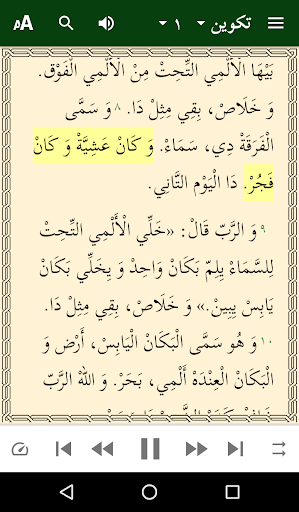 تكوين ١
بَيْهَا الْأَلْمِي التِّحِتْ مِنْ الْأَلْمِي الْفَوْق.
وَ خَلَاصْ، بَقِي مِثِلْ دَا. ٨ وَ سَمَّى
الْفَرَقَةْ دِي، سَمَاءْ. وَ كَانْ عَشِيَّةْ وَ كَانْ
فَجُرْ. دَا الْيَوْم التَّانِي.
٩ وَ الرَّبّ قَالْ: «خَلِّي الْأَلْمِي التِّحِتْ
لِلسَّمَاءْ يِلِمّ بَكَانْ وَاحِدْ وَ يِخَلِّي بَكَانْ
يَابِسْ يِبِينْ.» وَ خَلَاصْ، بَقِي مِثِلْ دَا.
١٠ وَ هُو سَمَّى الْبَكَانْ الْيَابِسْ، أَرْض وَ
الْبَكَانْ الْعِنْدَهْ أَلْمِي، بَحَرْ. وَ اللّٰهْ الرَّبّ